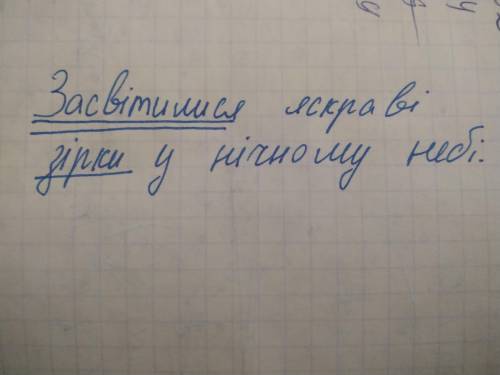 Засвітилися яскраві
зірки у нічному небі.